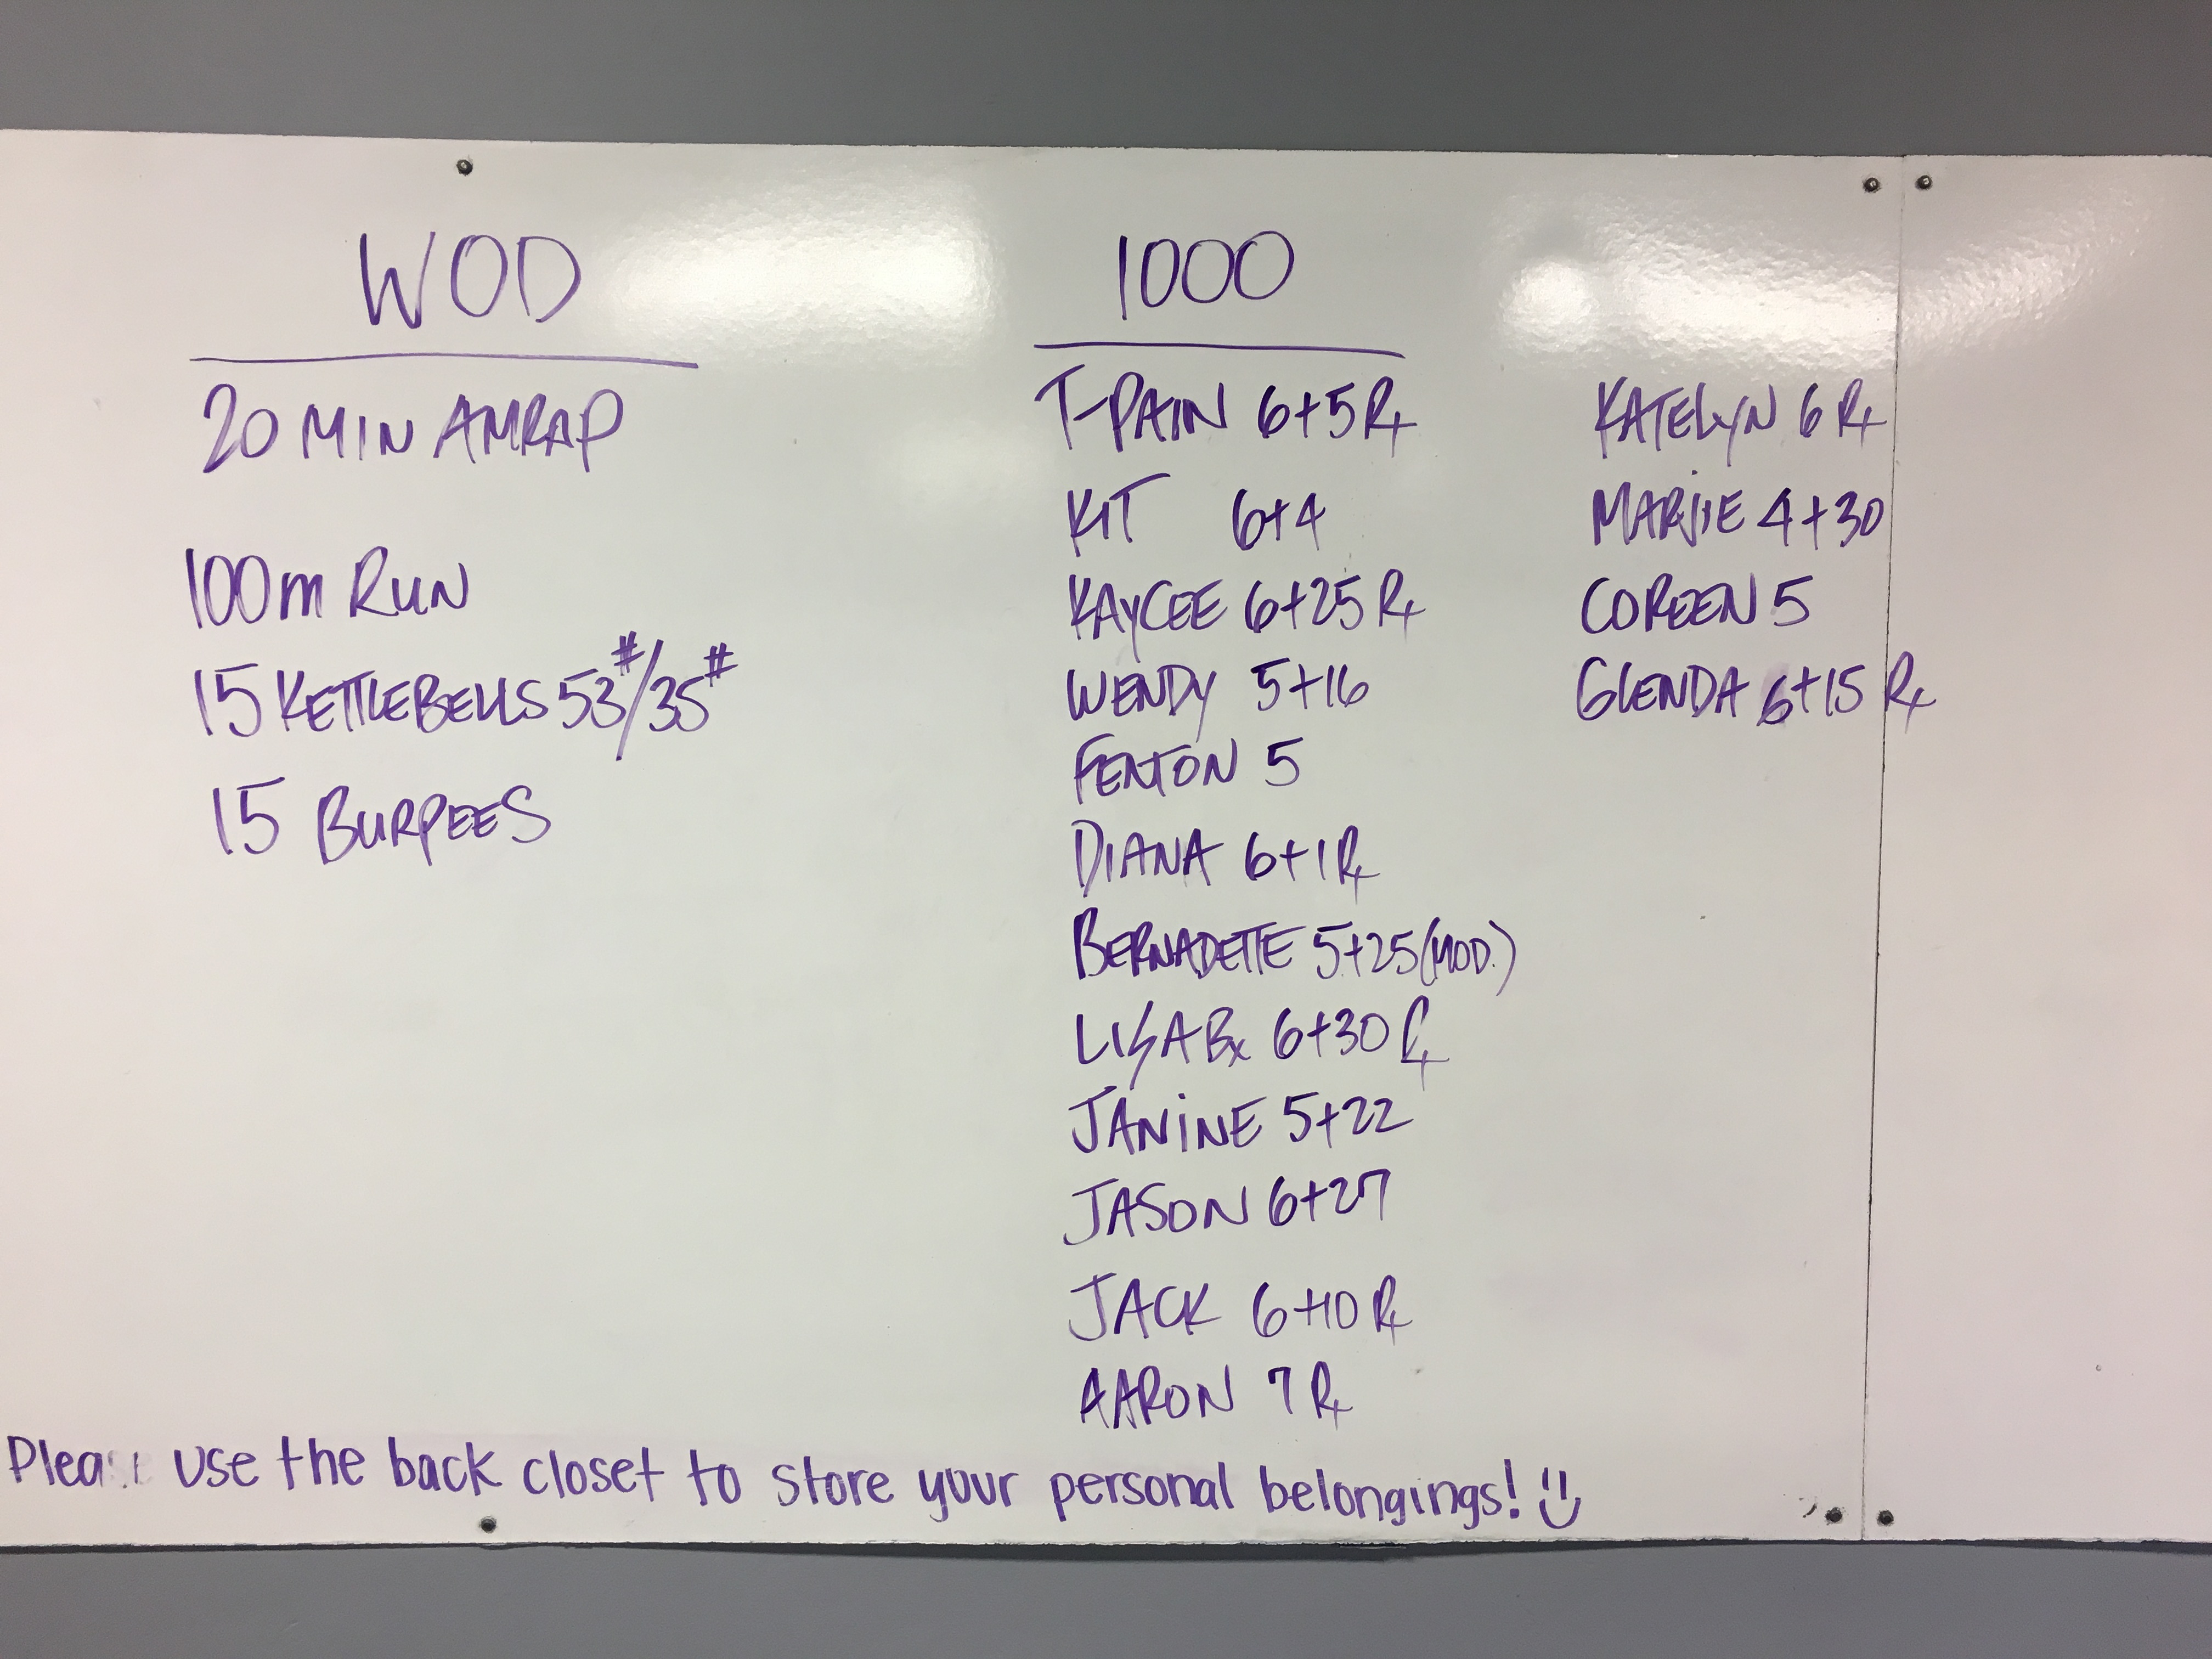 WOD
20 MIN AMRAP
100m RUN
15 KETTLEBELLS 53#/35#
15 BURPEES
1000
T-PAIN 6+5 Rx
KIT 6+4
KAYCEE 6+25 Rx
WENDY 5+16
FENTON 5
DIANA 6+1 Rx
BERNADETTE 5+25 (MOD.)
LISA Bx 6+30 Rx
JANINE 5+22
JASON 6+27
JACK 6+10 Rx
AARON 7 Rx
KATELYN 6 Rx
MARJIE 4+30
COREEN 5
GLENDA 6+15 Rx
Please use the back closet to store your personal belongings!